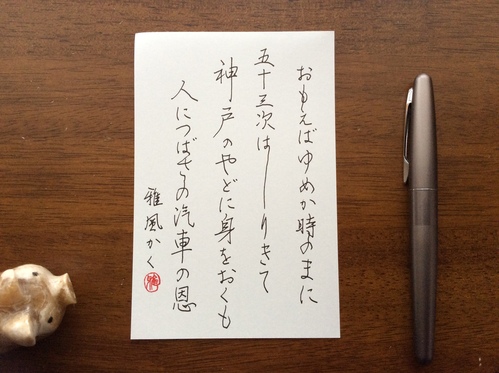 おもえばゆめか時のまに
五十三次はしりきて
神戸のやどに身をおくも
人につばさの汽車の恩
雅風かく